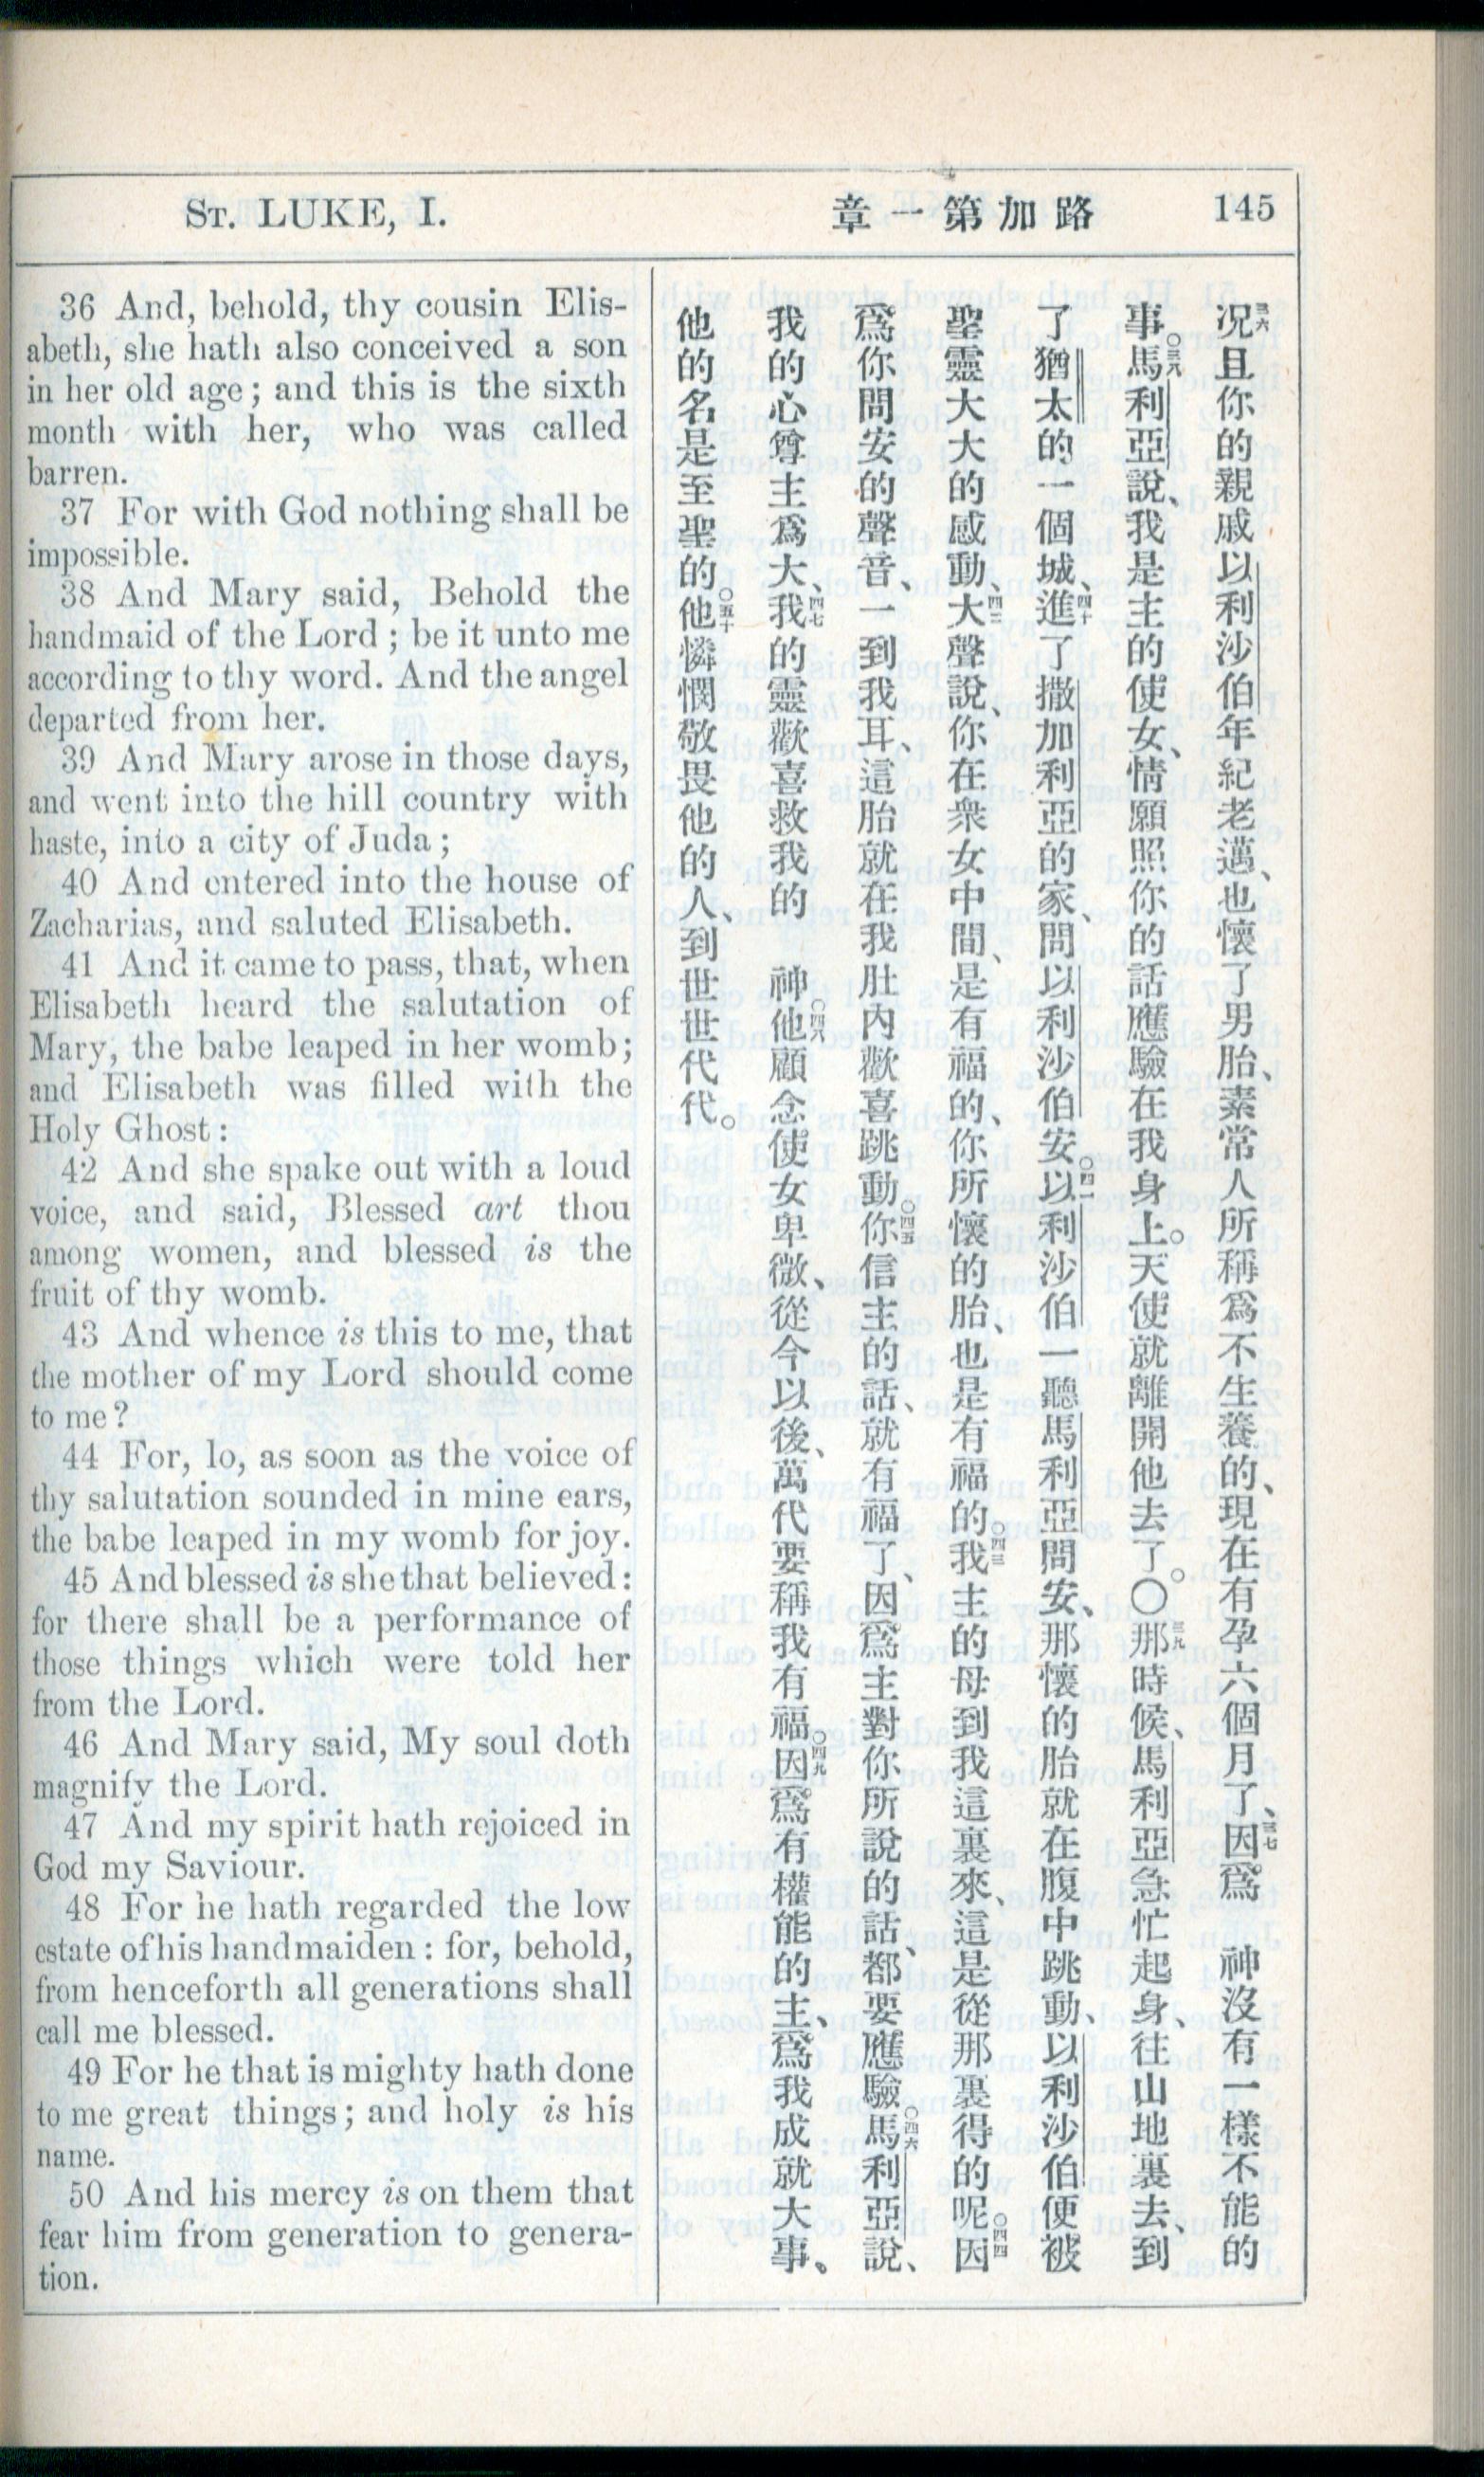 St. LUKE, I.
路加第一章
145
36 And, behold, thy cousin Elis-
abeth, she hath also conceived a son
in her old age; and this is the sixth
month with her, who was called
barren.
37 For with God nothing shall be
impossible.
38 And Mary said, Behold the
handmaid of the Lord; be it unto me
according to thy word. And the angel
departed from her.
39 And Mary arose in those days,
and went into the hill country with
haste, into a city of Juda;
40 And entered into the house of
Zacharias, and saluted Elisabeth.
41 And it came to pass, that, when
Elisabeth heard the salutation of
Mary, the babe leaped in her womb;
and Elisabeth was filled with the
Holy Ghost:
42 And she spake out with a loud
voice, and said, Blessed art thou
among women, and blessed is the
fruit of thy womb.
43 And whence is this to me, that
the mother of my Lord should come
to me?
44 For, lo, as soon as the voice of
thy salutation sounded in mine ears,
the babe leaped in my womb for joy.
45 And blessed is she that believed:
for there shall be a performance of
those things which were told her
from the Lord.
46 And Mary said, My soul doth
magnify the Lord.
47 And my spirit hath rejoiced in
God my Saviour.
48 For he hath regarded the low
estate of his handmaiden: for, behold,
from henceforth all generations shall
call me blessed.
49 For he that is mighty hath done
to me great things; and holy is his
name.
50 And his mercy is on them that
fear him from generation to genera-
tion.
三六況且你的親戚以利沙伯年紀老邁、也懷了男胎、素常人所稱爲不生養的、現在有孕六個月了、三七因爲 神沒有一樣不能的
事。馬利亞說、我是主的使女、情願照你的話應驗在我身上。天使就離開他去了。〇三九那時候、馬利亞急忙起身、往山地裏去、到
了猶太的一個城、四十進了撒加利亞的家、問以利沙伯安。四一以利沙伯一聽馬利亞問安、那懷的胎就在腹中跳動、以利沙伯便被
聖靈大大的感動、四二大聲說、你在衆女中間、是有福的、你所懷的胎、也是有福的。四三我主的母到我這裏來、這是從那裏得的呢。四四因
爲你問安的聲音、一到我耳、這胎就在我肚內歡喜跳動。四五你信主的話、就有福了、因爲主對你所說的話、都要應驗。四六馬利亞說、
我的心尊主爲大、四七我的靈歡喜救我的 神。四八他顧念使女卑微、從今以後、萬代要稱我有福。四九因爲有權能的主、爲我成就大事。
他的名是至聖的。五十他憐憫敬畏他的人、到世世代代。